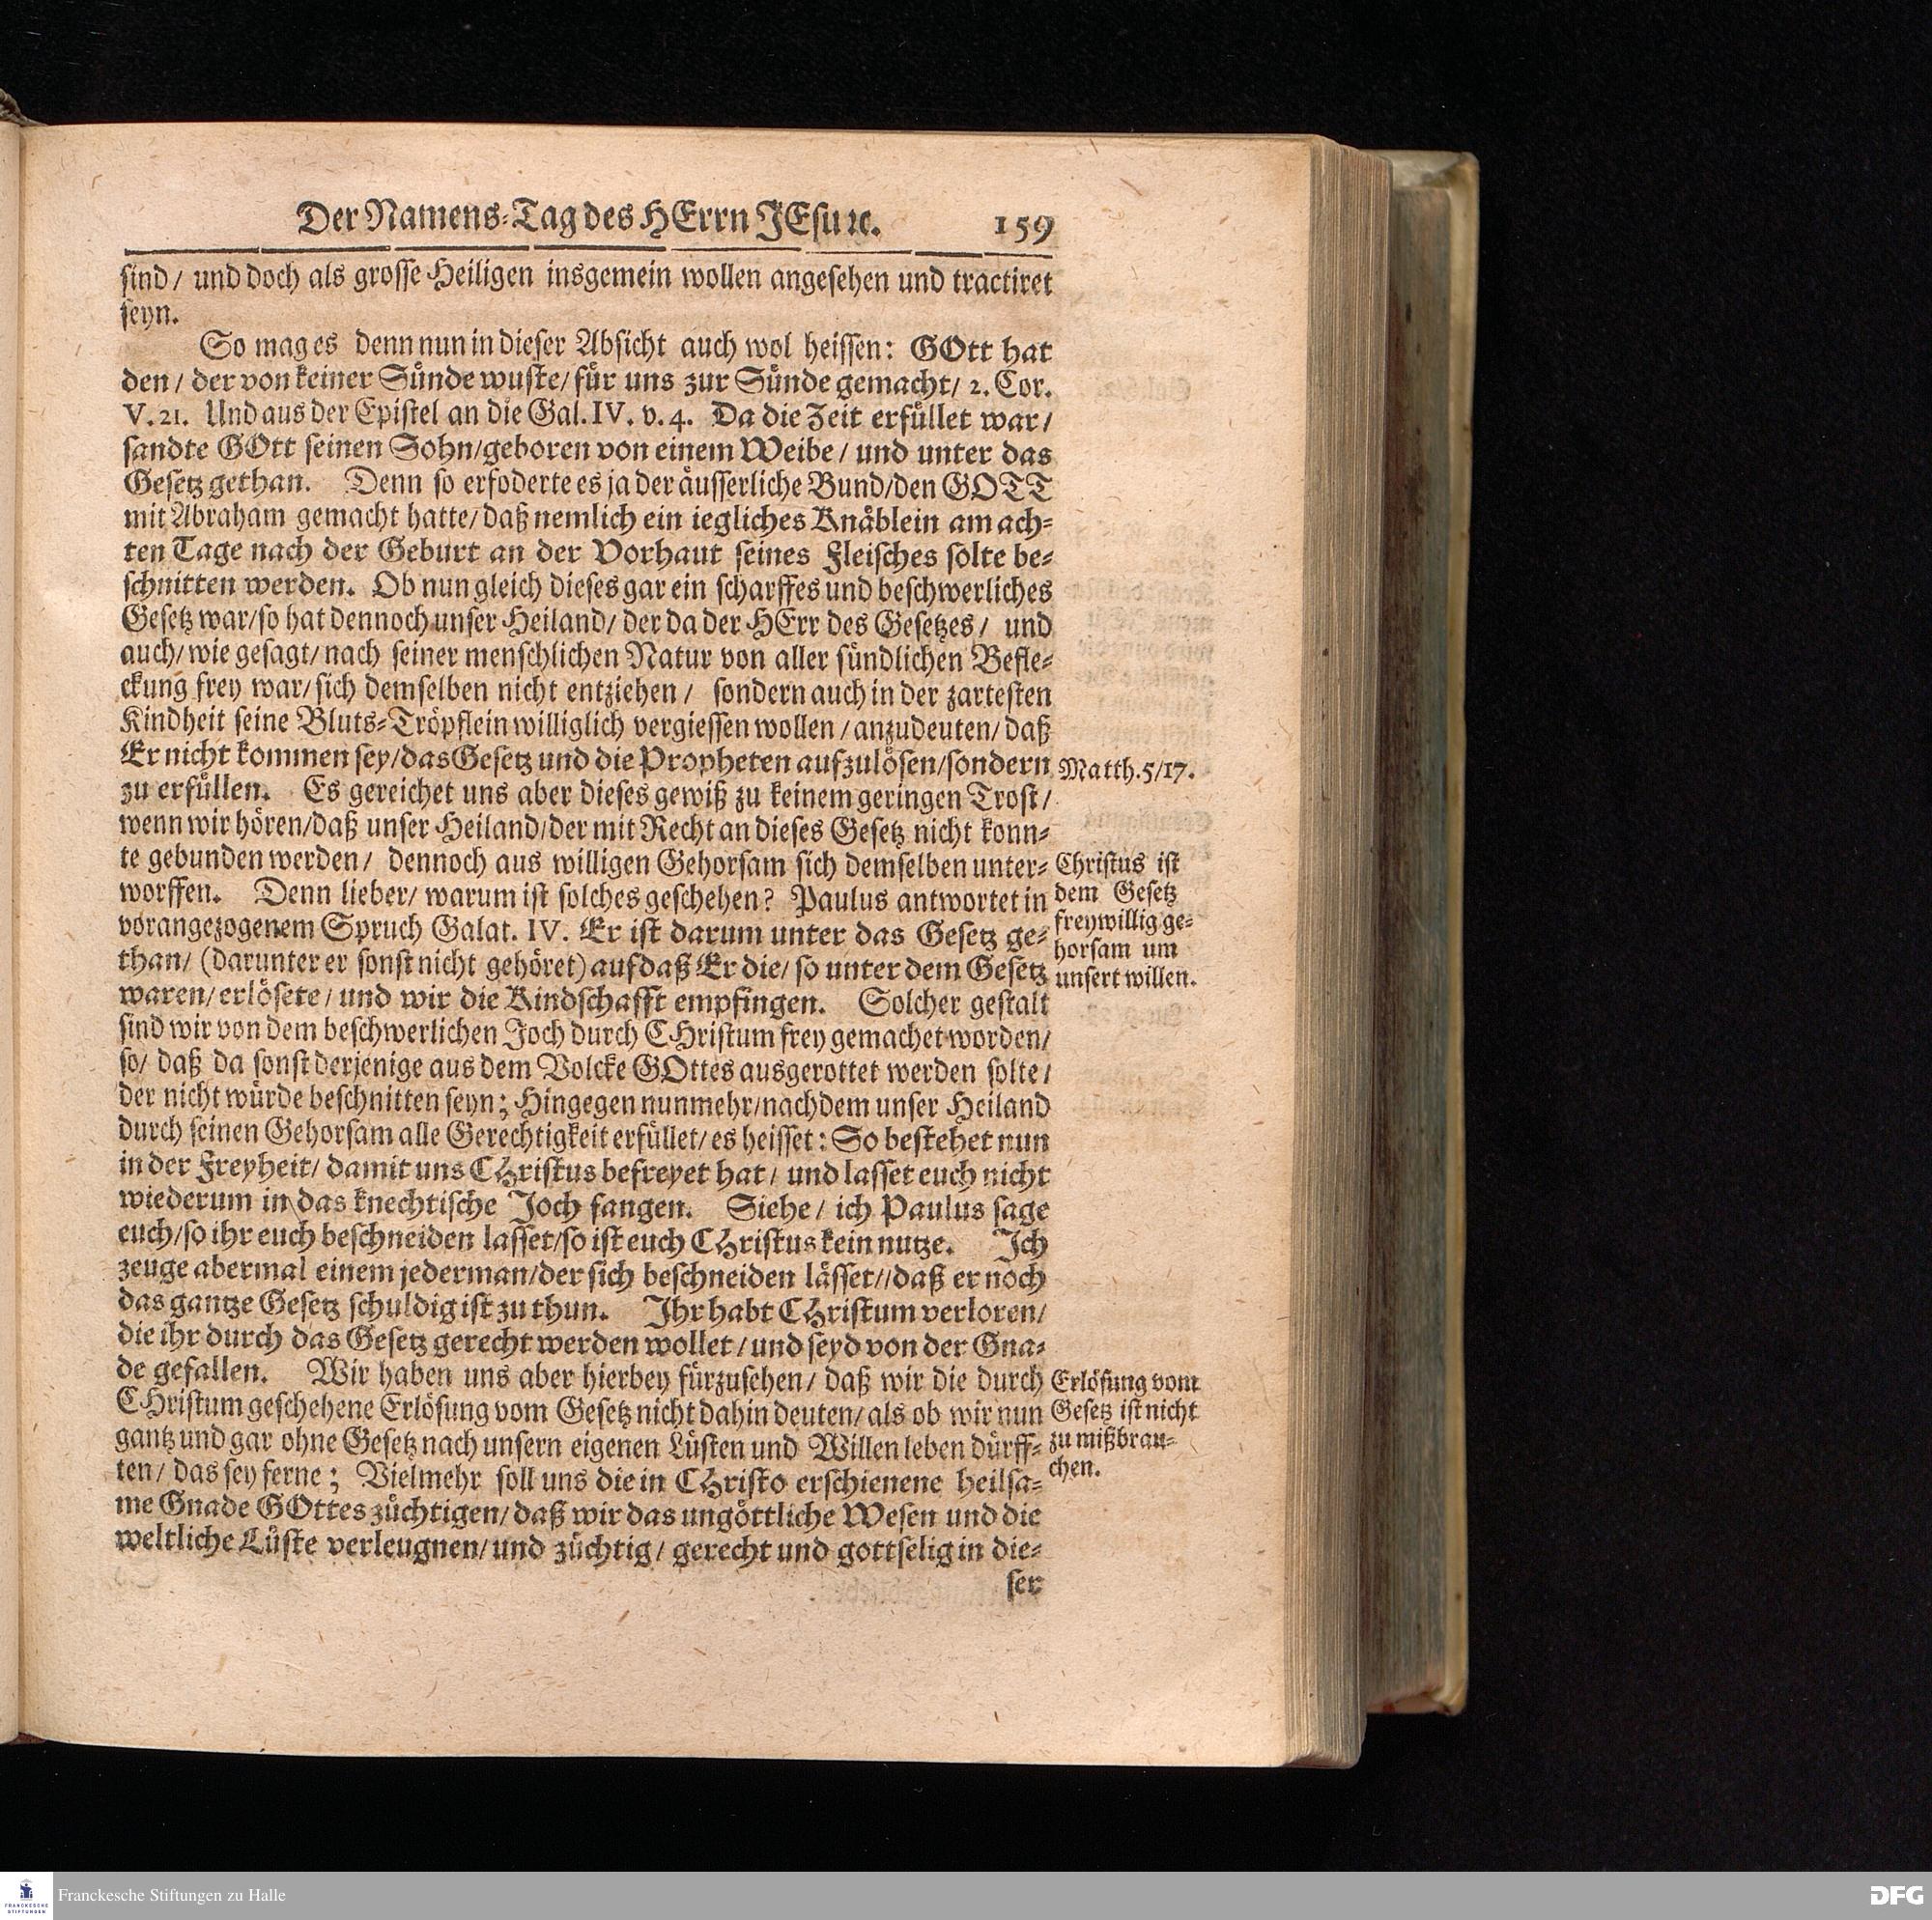 Der Namens-Tag des HErrn JEsu ꝛc. 159
sind / und doch als grosse Heiligen insgemein wollen angesehen und tractiret
seyn.
So mag es denn nun in dieser Absicht auch wol heissen: GOtt hat
den / der von keiner Sünde wuste / für uns zur Sünde gemacht / 2. Cor.
V. 21. Und aus der Epistel an die Gal. IV. v. 4. Da die Zeit erfüllet war /
sandte GOtt seinen Sohn / geboren von einem Weibe / und unter das
Gesetz gethan. Denn so erfoderte es ja der äusserliche Bund / den GOTT
mit Abraham gemacht hatte / daß nemlich ein iegliches Knäblein am ach-
ten Tage nach der Geburt an der Vorhaut seines Fleisches solte be-
schnitten werden. Ob nun gleich dieses gar ein scharffes und beschwerliches
Gesetz war / so hat dennoch unser Heiland / der da der HErr des Gesetzes / und
auch / wie gesagt / nach seiner menschlichen Natur von aller sündlichen Befle-
ckung frey war / sich demselben nicht entziehen / sondern auch in der zartesten
Kindheit seine Bluts-Tröpflein williglich vergiessen wollen / anzudeuten / daß
Er nicht kommen sey / das Gesetz und die Propheten aufzulösen / sondern
Matth. 5 / 17.
zu erfüllen. Es gereichet uns aber dieses gewiß zu keinem geringen Trost /
wenn wir hören / daß unser Heiland / der mit Recht an dieses Gesetz nicht konn-
te gebunden werden / dennoch aus willigen Gehorsam sich demselben unter-
worffen. Denn lieber / warum ist solches geschehen? Paulus antwortet in
vorangezogenem Spruch Galat. IV. Er ist darum unter das Gesetz ge-
than / (darunter er sonst nicht gehöret) auf daß Er die / so unter dem Gesetz
Christus ist
dem Gesetz
freywillig ge-
horsam um
unsert willen.
waren / erlösete / und wir die Kindschafft empfingen. Solcher gestalt
sind wir von dem beschwerlichen Joch durch CHristum frey gemachet worden /
so / daß da sonst derjenige aus dem Volcke GOttes ausgerottet werden solte /
der nicht würde beschnitten seyn; Hingegen nunmehr / nachdem unser Heiland
durch seinen Gehorsam alle Gerechtigkeit erfüllet / es heisset: So bestehet nun
in der Freyheit / damit uns CHristus befreyet hat / und lasset euch nicht
wiederum in das knechtische Joch fangen. Siehe / ich Paulus sage
euch / so ihr euch beschneiden lasset / so ist euch CHristus kein nutze. Ich
zeuge abermal einem jederman / der sich beschneiden lässet / / daß er noch
das gantze Gesetz schuldig ist zu thun. Ihr habt CHristum verloren /
die ihr durch das Gesetz gerecht werden wollet / und seyd von der Gna-
de gefallen. Wir haben uns aber hierbey fürzusehen / daß wir die durch
CHristum geschehene Erlösung vom Gesetz nicht dahin deuten / als ob wir nun
gantz und gar ohne Gesetz nach unsern eigenen Lüsten und Willen leben dürff-
ten / das sey ferne; Vielmehr soll uns die in CHristo erschienene heilsa-
Erlösung vom
Gesetz ist nicht
zu mißbrau-
chen.
me Gnade GOttes züchtigen / daß wir das ungöttliche Wesen und die
weltliche Lüste verleugnen / und züchtig / gerecht und gottselig in die-
ser
FRANCKESCHE
STIFTUNGEN
Franckesche Stiftungen zu Halle
DFG